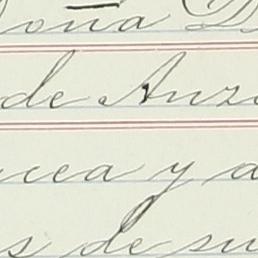 Doña D
de Anz
cea y d
s de su